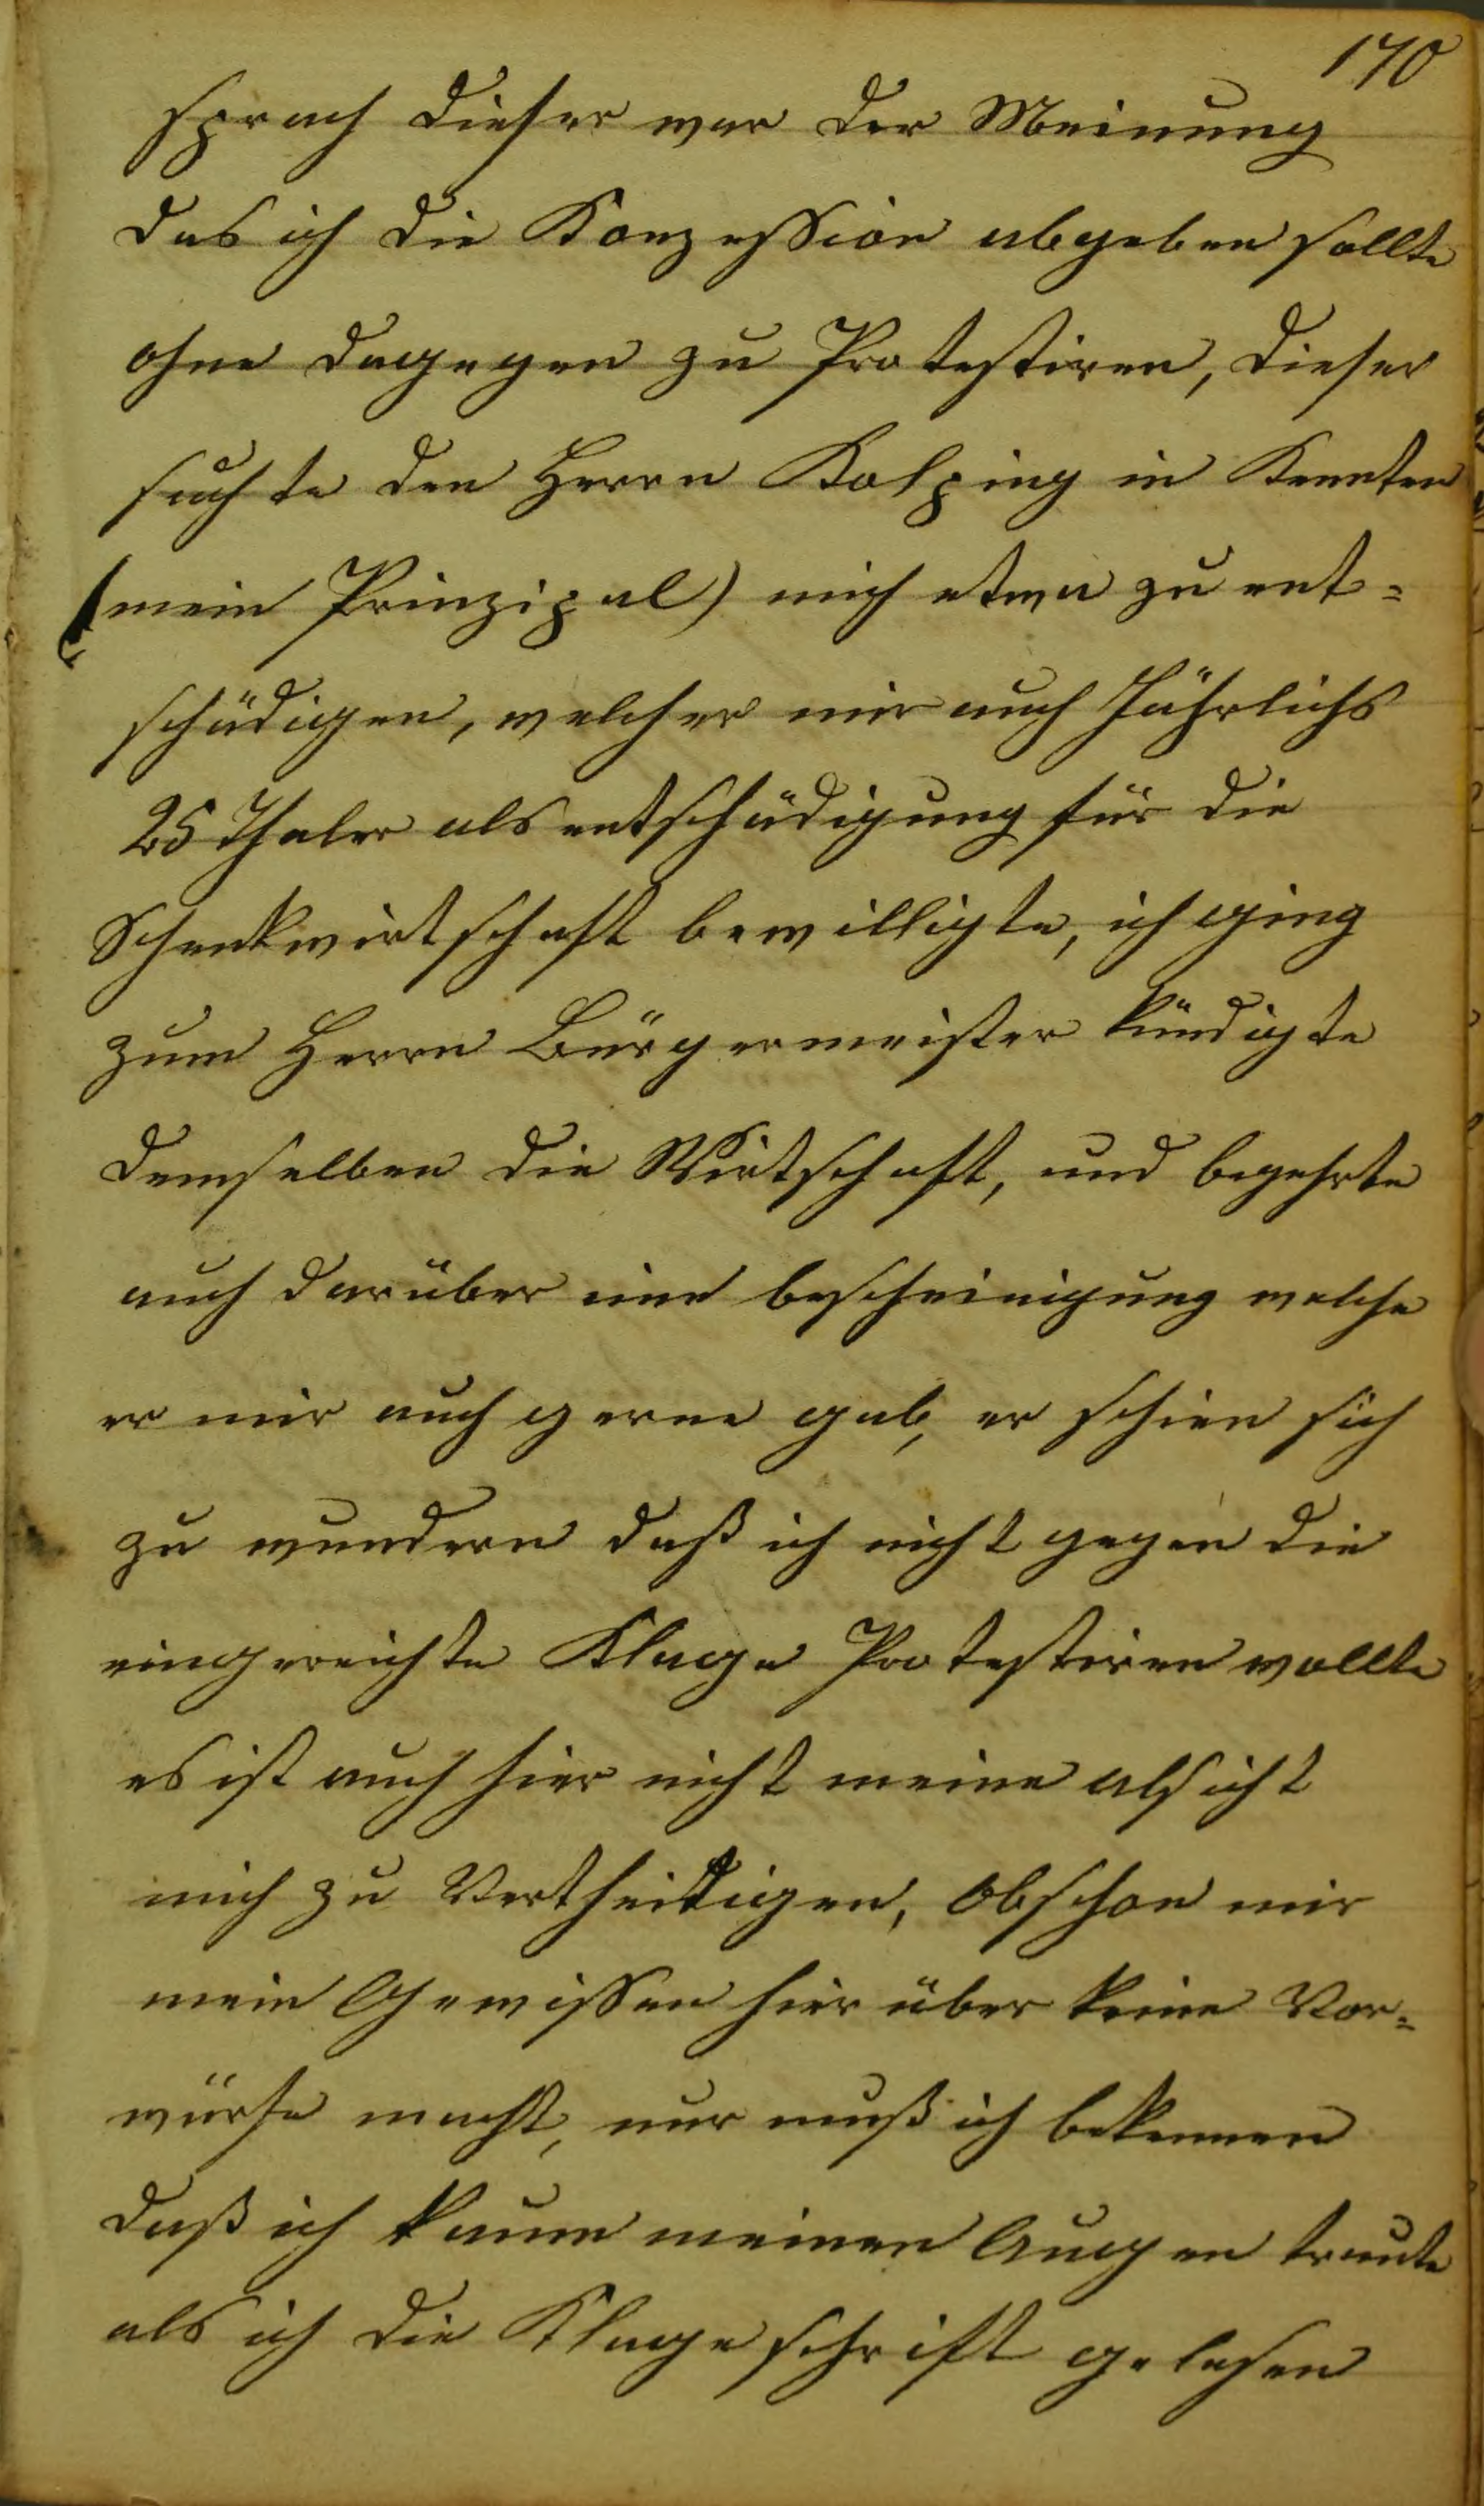 170
sprach dieser war der Meinung
das ich die Konzession abgeben sollte
ohne dagegen zu Protestiren, dieser
suchte den Herrn Kolping in Kennten
(mein Prinzipal) mich etwa zu ent=
schädigen, welcher mir auch Jährlichs
25 Thaler als entschädigung für die
Schenkwirtschaft bewilligte, ich ging
zum Herrn Bürgermeister kündigte
demselben die Wirtschaft, und begehrte
auch darüber eine bescheinigung welche
er mir auch gerne gab, er schien sich
zu wundern daß ich nicht gegen die
eingereichte Klage Protestiren wollte
es ist auch hier nicht meine absicht
mich zu Vertheidigen, Obschon mir
mein Gewissen hier über keine Vor=
würfe macht, nur muß ich bekennen
daß ich kaum meinen Augen traute
als ich die Klageschrift gelesen